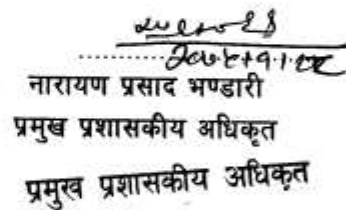 नारायण प्रसाद भण्डारी
प्रमुख प्रशासकीय अधिकृत
प्रमुख प्रशासकीय अधिकृत